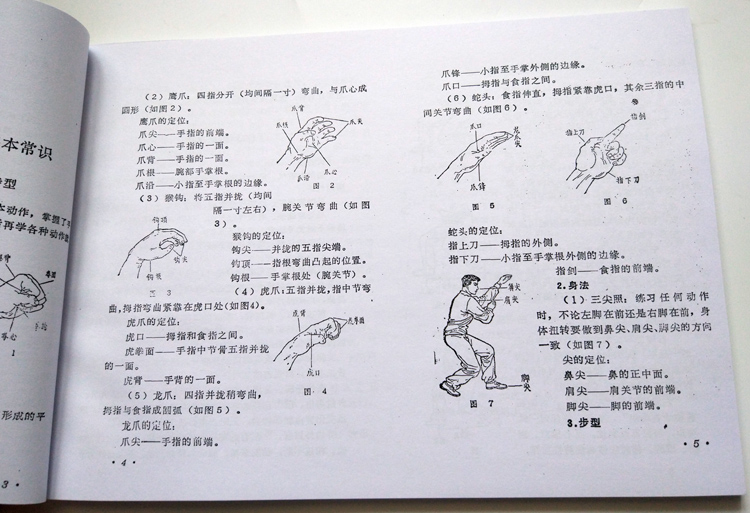 本常识
步型
本动作，掌握了
再学各种动作
1
形成的平
3 •
(2) 鹰爪：四指分开（均间隔一寸）弯曲，与爪心成
圆形（如图2）。
鹰爪的定位：
爪尖——手指的前端。
爪心——手指的一面。
爪背——手指的一面。
爪根——腕部手掌根。
爪沿——小指至手掌根的边缘。
爪背
爪尖
爪根
爪沿
爪心
图 2
(3) 猴钩：将五指并拢（均间
隔一寸左右），腕关节弯曲（如图
3）。
钩顶
钩尖
钩根
图 3
猴钩的定位：
钩尖——并拢的五指尖端。
钩顶——指根弯曲凸起的位置。
钩根——手掌根处（腕关节）。
(4) 虎爪：五指并拢，指中节弯
曲，拇指弯曲紧靠在虎口处(如图4)。
虎爪的定位：
虎口——拇指和食指之间。
虎拳面——手指中节骨五指并拢
的一面。
虎背——手背的一面。
虎背
虎拳面
虎口
图 4
(5) 龙爪：四指并拢稍弯曲，
拇指与食指成圆弧（如图5）。
龙爪的定位：
爪尖——手指的前端。
• 4 •
爪锋——小指至手掌外侧的边缘。
爪口——拇指与食指之间。
(6) 蛇头：食指伸直，拇指紧靠虎口，其余三指的中
间关节弯曲（如图6）。
爪口
爪尖
爪锋
图 5
指剑
指上刀
指下刀
图 6
蛇头的定位：
指上刀——拇指的外侧。
指下刀——小指至手掌根外侧的边缘。
指剑——食指的前端。
2.身法
(1) 三尖照：练习任何动作
时，不论左脚在前还是右脚在前，身
体扭转要做到鼻尖、肩尖、脚尖的方向
一致（如图7）。
尖的定位：
鼻尖——鼻的正中面。
肩尖——肩关节的前端。
脚尖——脚的前端。
鼻尖
肩尖
脚尖
图 7
3.步型
• 5 •